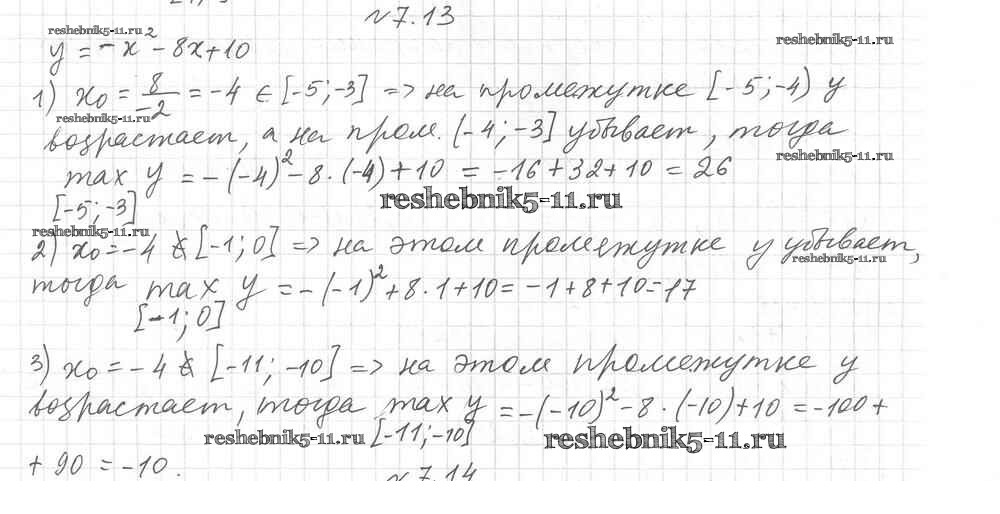 №7.13
reshebnik5-11.ru
reshebnik5-11.ru
y = -x² - 8x + 10
1) x₀ = 8/-2 = -4 ∈ [-5; -3] => на промежутке [-5; -4) y
reshebnik5-11.ru
возрастает, а на пром. (-4; -3] убывает, тогда
reshebnik5-11.ru
max y = -(-4)² - 8·(-4) + 10 = -16 + 32 + 10 = 26
[-5; -3]
reshebnik5-11.ru
reshebnik5-11.ru
2) x₀ = -4 ∉ [-1; 0] => на этом промежутке y убывает,
reshebnik5-11.ru
тогда max y = -(-1)² + 8·1 + 10 = -1 + 8 + 10 = 17
[-1; 0]
3) x₀ = -4 ∉ [-11; -10] => на этом промежутке y
возрастает, тогда max y = -(-10)² - 8·(-10) + 10 = -100 +
reshebnik5-11.ru [-11; -10] reshebnik5-11.ru
+ 90 = -10.
№7.14